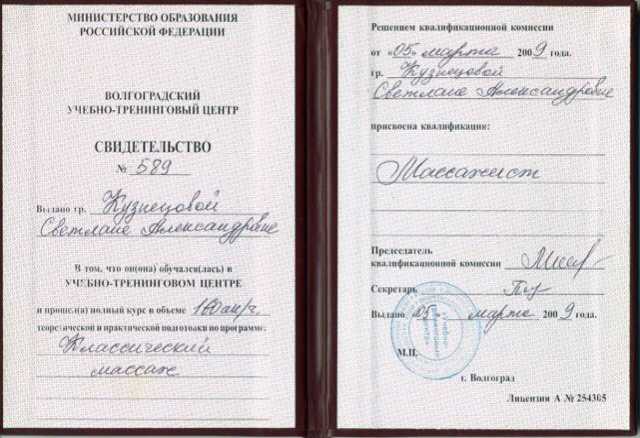 МИНИСТЕРСТВО ОБРАЗОВАНИЯ
РОССИЙСКОЙ ФЕДЕРАЦИИ
ВОЛГОГРАДСКИЙ
УЧЕБНО-ТРЕНИНГОВЫЙ ЦЕНТР
СВИДЕТЕЛЬСТВО
№ 589
Выдано гр. Кузнецовой
Светлане Александровне
В том, что он(она) обучался(лась) в
УЧЕБНО-ТРЕНИНГОВОМ ЦЕНТРЕ
и прошел(а) полный курс в объеме 160
теоретической и практической подготовки по программе:
Классический
массаж
Решением квалификационной комиссии
от «05» марта 2009 года.
гр. Кузнецовой
Светлане Александровне
присвоена квалификация:
Массажист
Председатель
квалификационной комиссии
Секретарь
Выдано «05» марта 2009 года.
М.П.
г. Волгоград
Лицензия А № 254305